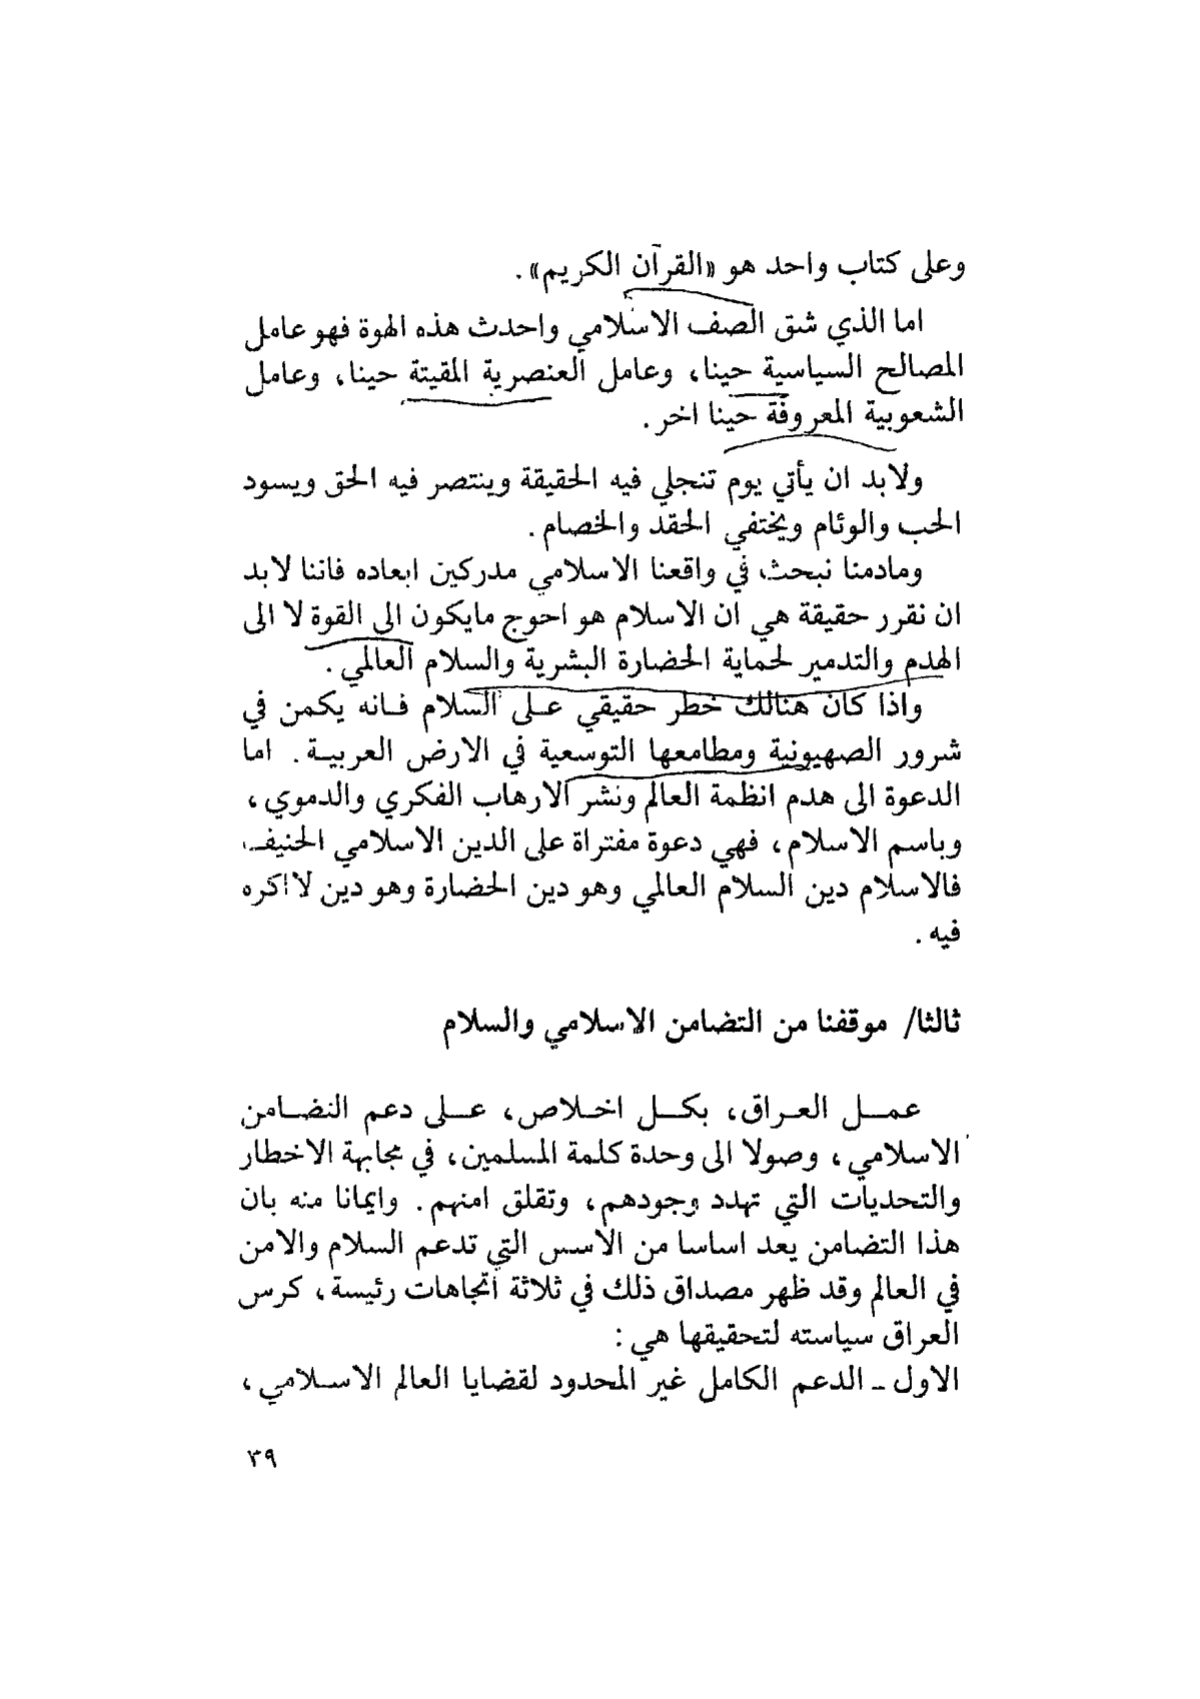 وعلى كتاب واحد هو «القرآن الكريم» .
اما الذي شق الصف الاسلامي واحدث هذه الهوة فهو عامل
المصالح السياسية حينا، وعامل العنصرية المقيتة حينا، وعامل
الشعوبية المعروفة حينا اخر .
ولابد ان يأتي يوم تنجلي فيه الحقيقة وينتصر فيه الحق ويسود
الحب والوئام ويختفي الحقد والخصام .
ومادمنا نبحث في واقعنا الاسلامي مدركين ابعاده فاننا لابد
ان نقرر حقيقة هي ان الاسلام هو احوج مايكون الى القوة لا الى
الهدم والتدمير لحماية الحضارة البشرية والسلام العالمي .
واذا كان هنالك خطر حقيقي على السلام فانه يكمن في
شرور الصهيونية ومطامعها التوسعية في الارض العربية . اما
الدعوة الى هدم انظمة العالم ونشر الارهاب الفكري والدموي ،
وباسم الاسلام ، فهي دعوة مفتراة على الدين الاسلامي الحنيف،
فالاسلام دين السلام العالمي وهو دين الحضارة وهو دين لااكره
فيه .
ثالثا/ موقفنا من التضامن الاسلامي والسلام
عمل العراق، بكل اخلاص، على دعم التضامن
الاسلامي ، وصولا الى وحدة كلمة المسلمين، في مجابهة الاخطار
والتحديات التي تهدد وجودهم، وتقلق امنهم . وايمانا منه بان
هذا التضامن يعد اساسا من الاسس التي تدعم السلام والامن
في العالم وقد ظهر مصداق ذلك في ثلاثة اتجاهات رئيسة ، كرس
العراق سياسته لتحقيقها هي :
الاول ـ الدعم الكامل غير المحدود لقضايا العالم الاسلامي ،
٣٩